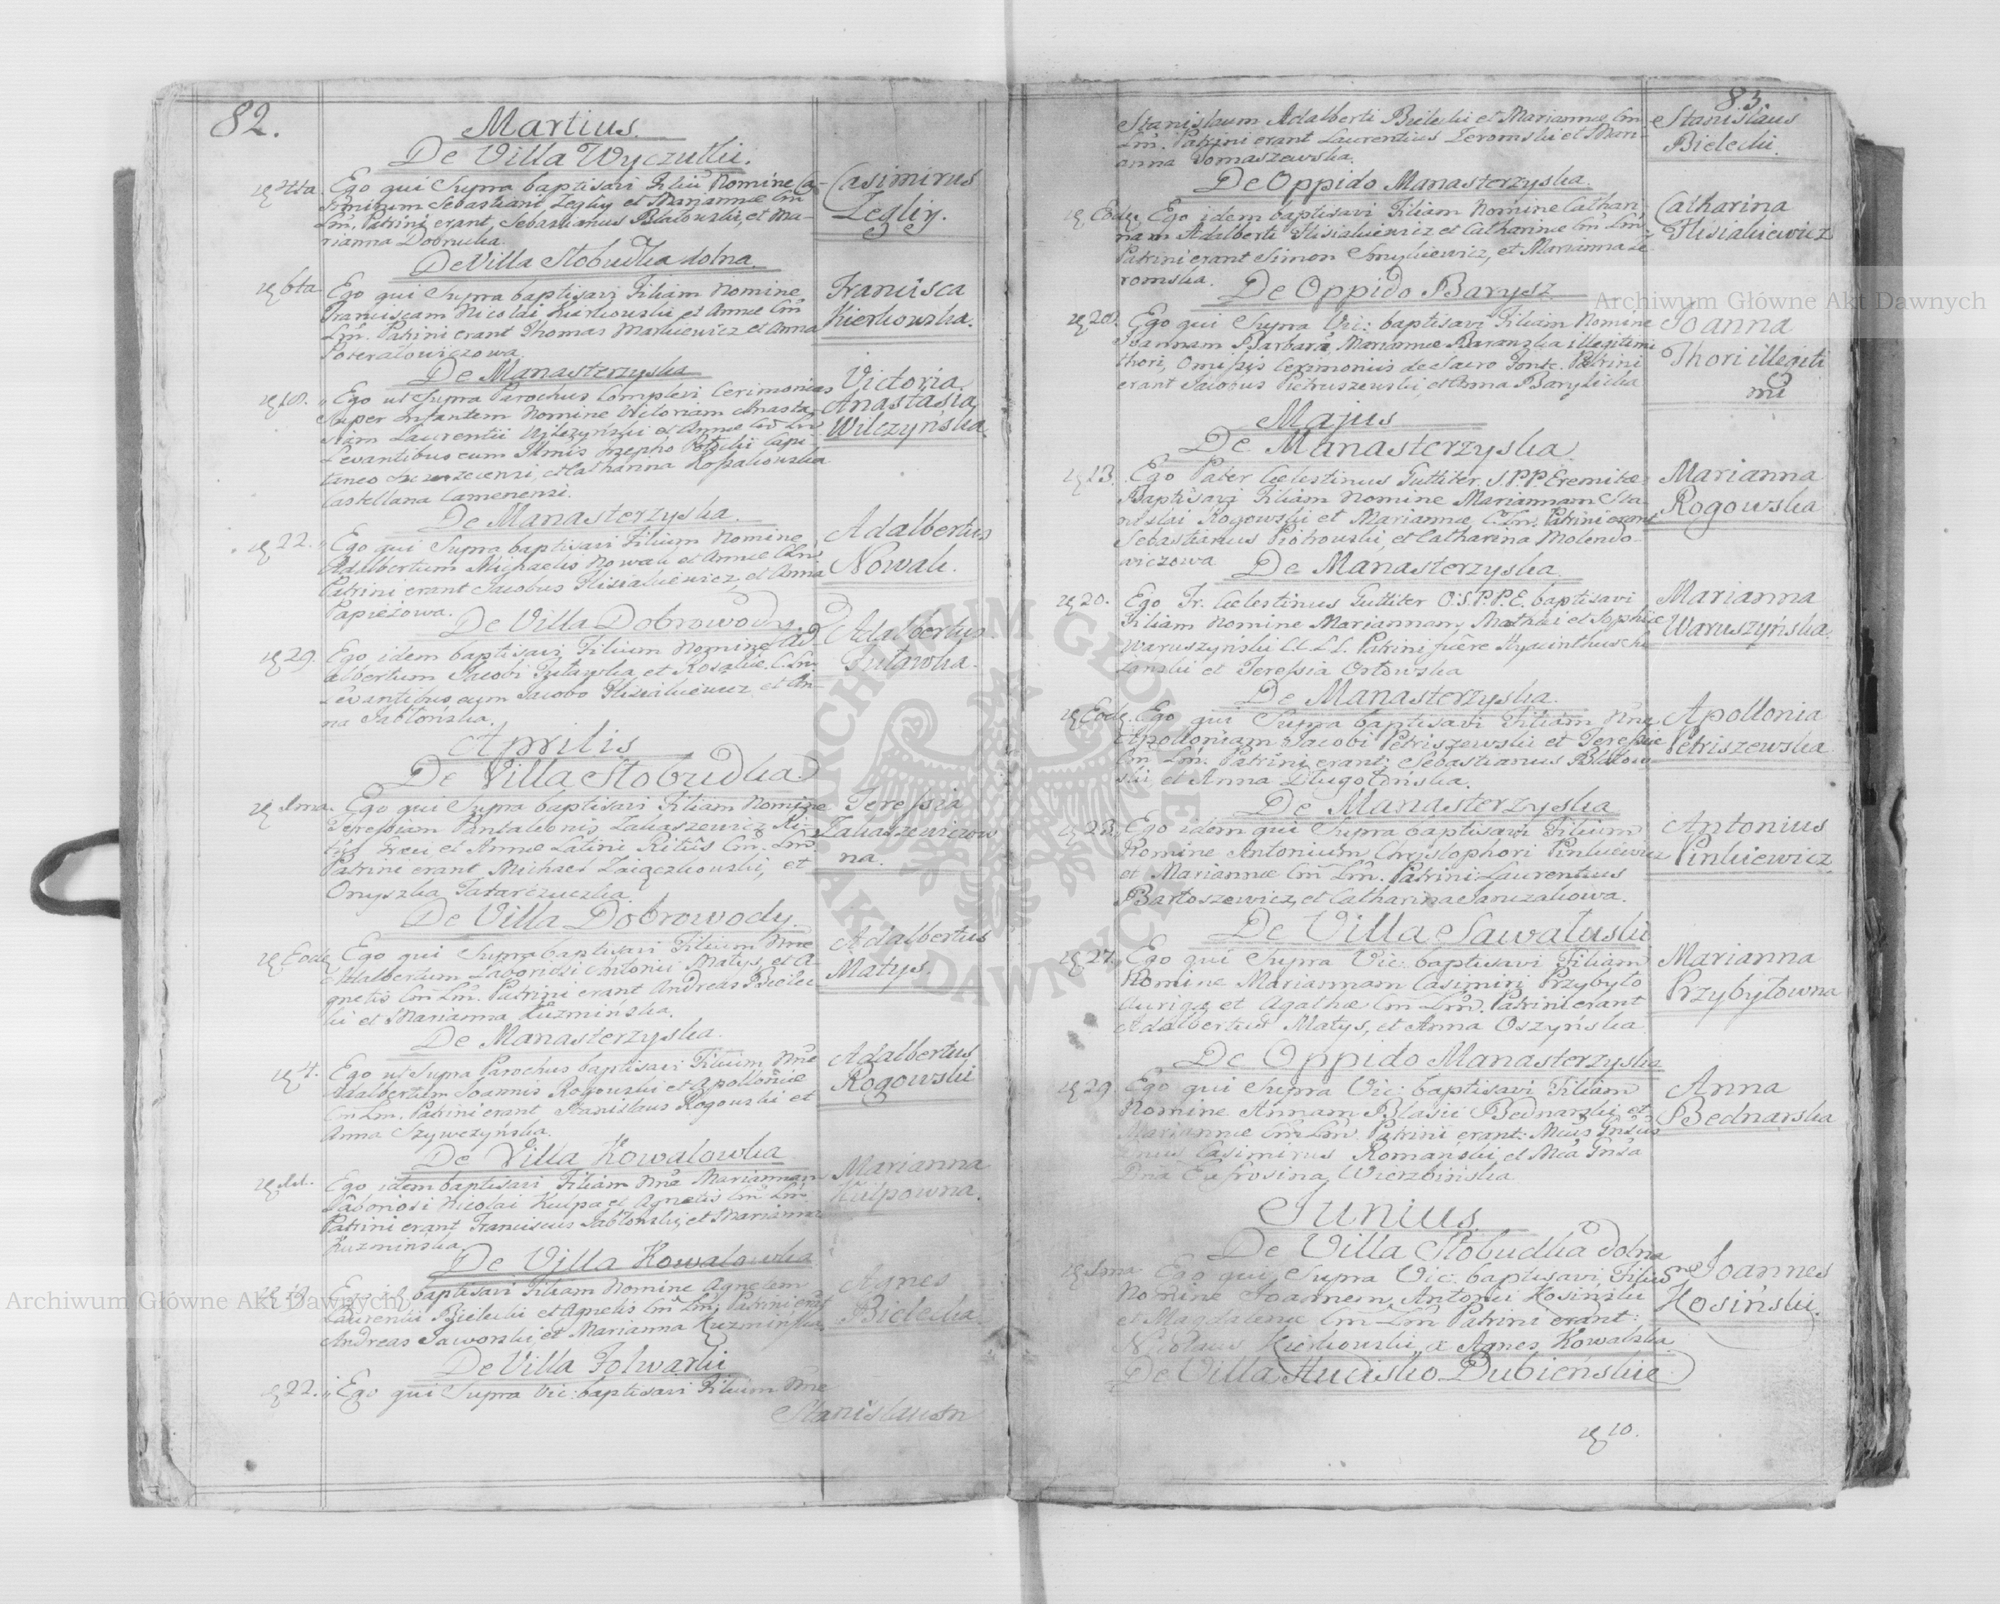 82.
Martius
De Villa Wyczułki.
Ego qui Supra baptisavi Filiũ Nomine Ca-
simirum Sebastiani Leglij et Mariannæ Cm̃
Lm̃. Patrini erant, Sebastianus Blatowski, et Ma-
rianna Dobrucka.
Casimirus
Leglij.
De Villa Słobudka dolna.
6ta Ego qui Supra baptisavi Filiam Nomine
Franciscam Nicolai Kierkowski et Annæ Cm̃
Lm̃. Patrini erant Thomas Markiewicz et Anna
Francisca
Kierkowska.
De Manasterzyska
Ego ut Supra Parochus Complevi Cerimonias
Super Infantem Nomine Victoriam Anasta-
Laurentii Wilczyński et Annæ
Levantibus eum Illmis Josepho Potocki Capi-
taneo et Catharina Kossakowska
Castellana Camenensi.
Victoria
Anastasia
Wilczyńska.
De Manasterzyska.
22. Ego qui Supra baptisavi Filium Nomine
Adalbertum Michaelis Nowak et Annæ
Patrini erant Jacobus Hlisiakiewicz et Anna
Papieżowa.
Adalbertus
Nowak.
De Villa Dobrowody.
29. Ego idem baptisavi Filium Nomine Ad-
albertum Jacobi et Rosaliæ
Levantibus eum Jacobo Hlisiakiewicz et An-
na Jabłońska.
Adalbertus
Aprilis
De Villa Słobudka
1ma. Ego qui Supra baptisavi Filiam Nomine
Teressiam Pantaleonis Zakaszewicz Ri-
tus Græci et Annæ Latini Ritûs Cm̃. Lm̃
Patrini erant Michael Zaiączkowski, et
Onyszka
Teressia
Zakaszewiczow
na.
De Villa Dobrowody
Eode Ego qui Supra baptisavi Filium Nnẽ
Adalbertum Laboriosi Antonii Matys, et A-
gnetis Cm̃ Lm̃. Patrini erant Andreas Bielec-
ki et Marianna Kuzmińska.
Adalbertus
Matys.
De Manasterzyska.
4. Ego ut Supra Parochus baptisavi Filium Nnẽ
Adalbertum Joannis Rogowski et Apolloniæ
Cm̃ Lm̃. Patrini erant Stanislaus Rogowski et
Anna
Adalbertus
Rogowski
De Villa Kowalowka
11. Ego idem baptisavi Filiam Nnẽ Mariannam
Laboriosi Nicolai Kulpa et Agnetis Cm̃ Lm̃
Patrini erant Franciscus Jabłoński, et Marianna
Kuzmińska
Marianna
Kulpowna.
De Villa Kowalowka
baptisavi Filiam Nomine Agnetem
Laurentii Bielecki et Agnetis Cm̃ Lm̃. Patrini erãt
Andreas Jaworski et Marianna Kuzmińska
Agnes
Bielecka.
De Villa Folwarki
22. Ego qui Supra Vic: baptisavi Filium Nnẽ
Stanislaum
83.
Stanislaum Adalberti Bielecki et Mariannæ Cm̃
Lm̃. Patrini erant Laurentius Jeromski et Mari-
anna Tomaszewska.
Stanislaus
Bielecki.
De Oppido Manasterzyska.
Eode Ego idem baptisavi Filiam Nomine Cathari-
nam Adalberti Hlisiakiewicz et Catharinæ Cm̃ Lm̃
Patrini erant Simon Smykiewicz, et Marianna Je
romska.
Catharina
Hlisiakiewicz
De Oppido Barysz
Ego qui Supra Vic: baptisavi Filiam Nomine
Joannam Barbarã, Mariannæ illegitimi
thori, Omissis Cerimoniis de Sacro Fonte. Patrini
erant Jacobus Pietruszewski, et Anna
Joanna
Thori illegiti
mi
Majus
De Manasterzyska
13. Ego Pater Cælestinus Guttiter. S.P.P. Eremitæ
Baptisavi Filiam Nomine Mariannam Sta-
nislai Rogowski et Mariannæ C. Lm̃. Patrini erant
Sebastianus Piotrowski, et Catharina Molendo-
wiczowa
Marianna
Rogowska
De Manasterzyska.
20. Ego Fr. Cælestinus Guttiter O.S.P.P.E. baptisavi
Filiam Nomine Mariannam, Mathæi et Sophiæ
Waruszyński C.C. L.L. Patrini fuêre Hyacinthus
et Teressia Orłowska
Marianna
Waruszyńska.
De Manasterzyska.
Eode. Ego qui Supra baptisavi Filiam Nnẽ
Apolloniam Jacobi Petriszewski et Teressiæ
Cm̃ Lm̃. Patrini erant: Sebastianus Blatow-
ski, et Anna Długołońska.
Apollonia
Petriszewska
De Manasterzyska
Ego idem qui Supra baptisavi Filium
Nomine Antonium Chrystophori Pinkiewicz
et Mariannæ Cm̃ Lm̃. Patrini Laurentius
Bartoszewicz, et Catharina
Antonius
Pinkiewicz
De Villa Sawałuski
27. Ego qui Supra Vic: baptisavi Filiam
Nomine Mariannam Casimiri Przybyło
Aurigæ et Agathæ Cm̃ Lm̃. Patrini erant
Adalbertus Matys, et Anna Oszyńska
Marianna
Przybyłowna
De Oppido Manasterzyska
29. Ego qui Supra Vic: baptisavi Filiam
Nomine Annam Blasii Bednarski et
Mariannæ Cm̃ Lm̃. Patrini erant:
Casimirus Romański et
Eufrosina Wierzbińska
Anna
Bednarska
Junius
De Villa Słobudka dolna
Ego qui Supra Vic: baptisavi Filiũ
Nomine Joannem Antonii Kosiński
et Magdalenæ Cm̃ Lm̃ Patrini erant:
Nicolaus Kierkowski, et Agnes Kowalska
Joannes
Kosiński.
De Villa Hucisko Dubieńskie
10.
Archiwum Główne Akt Dawnych
Archiwum Główne Akt Dawnych
ARCHIWUM GŁÓWNE AKT DAWNYCH